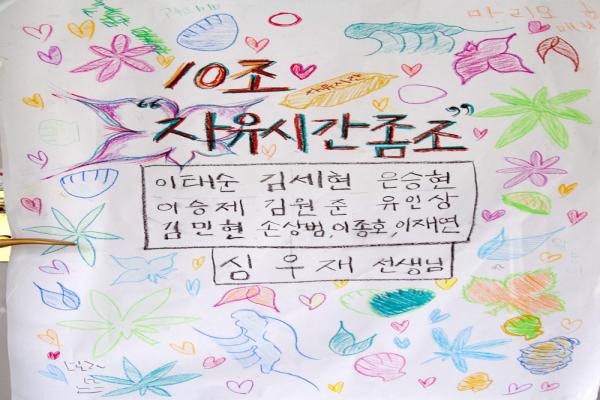 10조
"자유시간좀조"
이태순 김세현 은승현
이승제 김원준 유인상
김민현 손상범,이종호,이재연
심우재 선생님